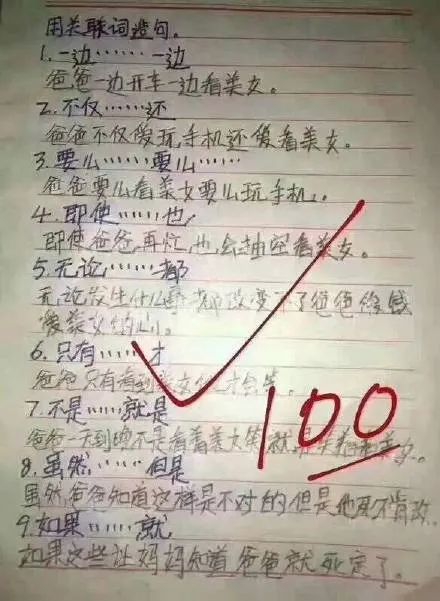 用关联词造句。
1.一边……一边
爸爸一边开车一边看美女。
2.不仅……还
爸爸不仅爱玩手机还爱看美女。
3.要么……要么……
爸爸要么看美女要么玩手机。
4.即使……也
即使爸爸再忙,也会抽空看美女。
5.无论……都
无论发生什么事都改变不了爸爸
爱美女的心。
6.只有……才
爸爸只有看到美女他才会笑。
7.不是……就是
爸爸一天到晚不是看着美女笑就是
8.虽然……但是
虽然爸爸知道这样是不对的但是他死不肯改。
9.如果……就
如果这些让妈妈知道爸爸就死定了。
100